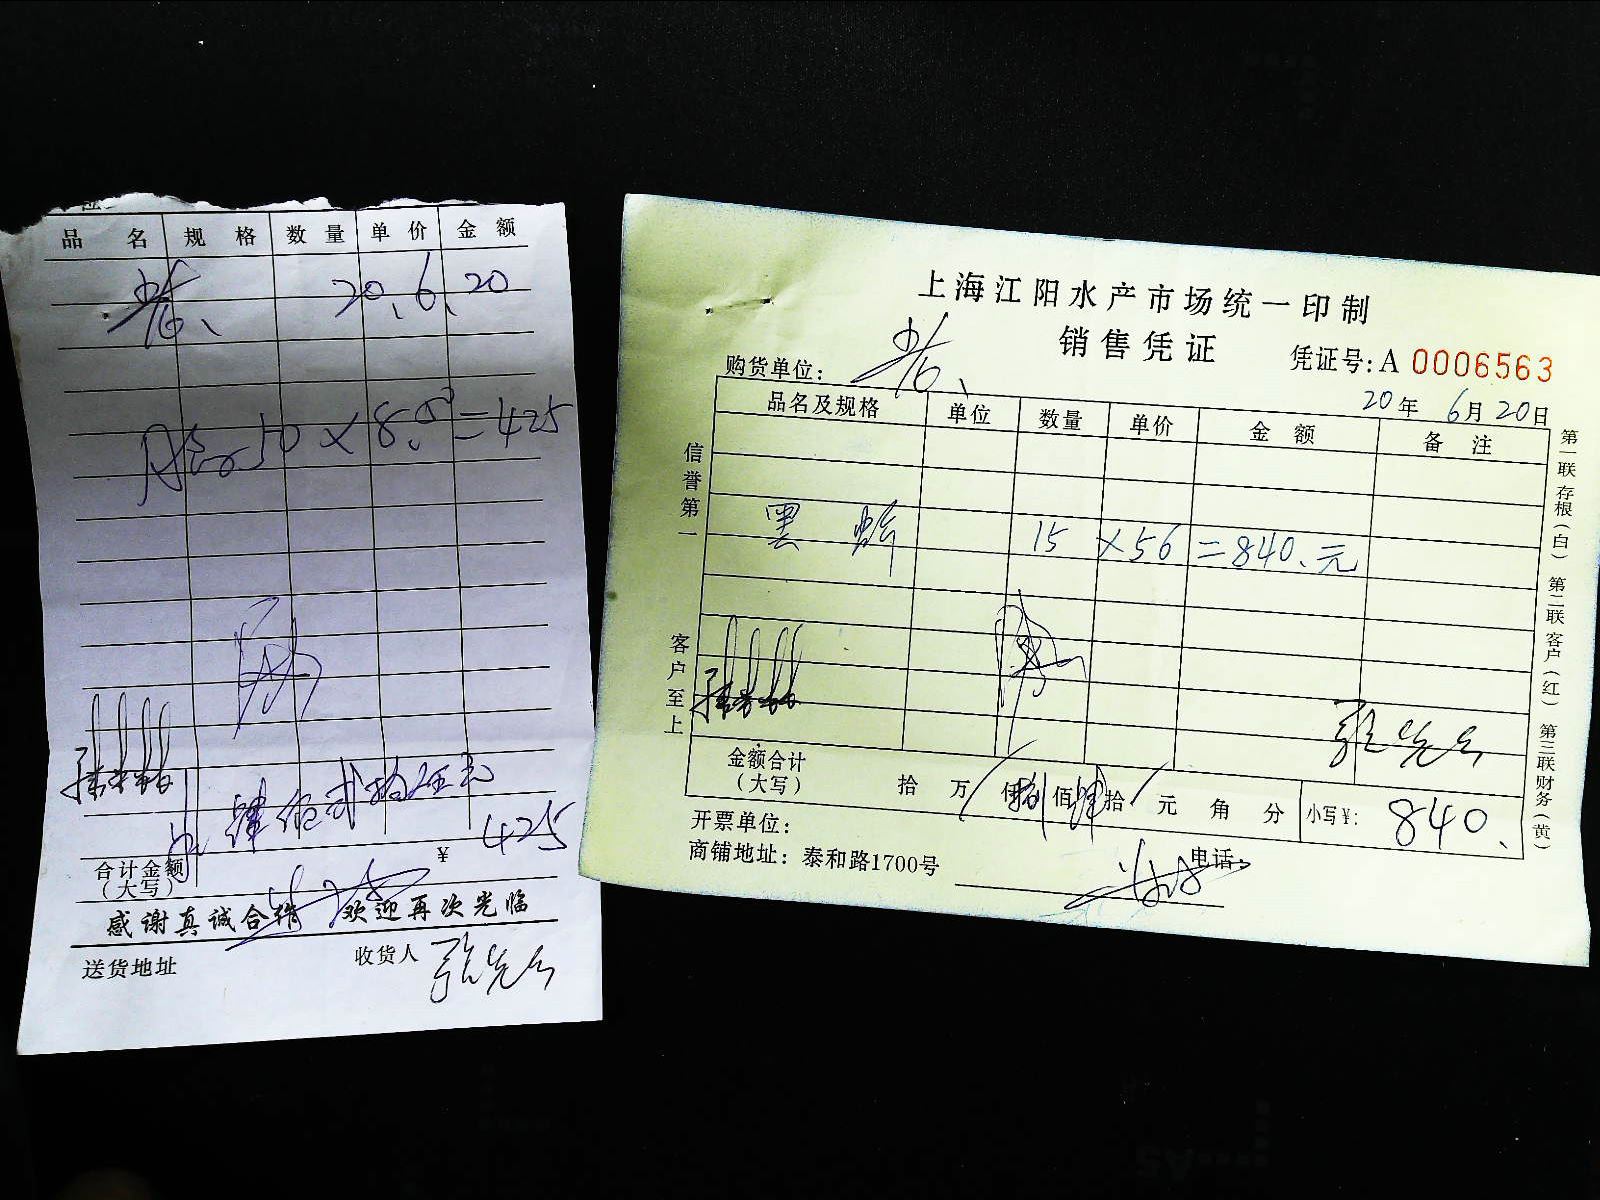 品名 规格 数量 单价 金额
20.6.20
50×8.5=425
肆佰贰拾伍元
合计金额
(大写)
¥ 425
感谢真诚合作 欢迎再次光临
送货地址
收货人 张先云
上海江阳水产市场统一印制
销售凭证
凭证号:A 0006563
购货单位:
20年 6月20日
品名及规格 单位 数量 单价 金额 备注
黑虾 15 ×56 =840.元
张先云
金额合计
(大写)
拾 万 仟捌佰肆拾 元 角 分 小写¥: 840.
开票单位:
商铺地址:泰和路1700号
电话:
信誉第一
客户至上
第一联存根(白) 第二联客户(红) 第三联财务(黄)